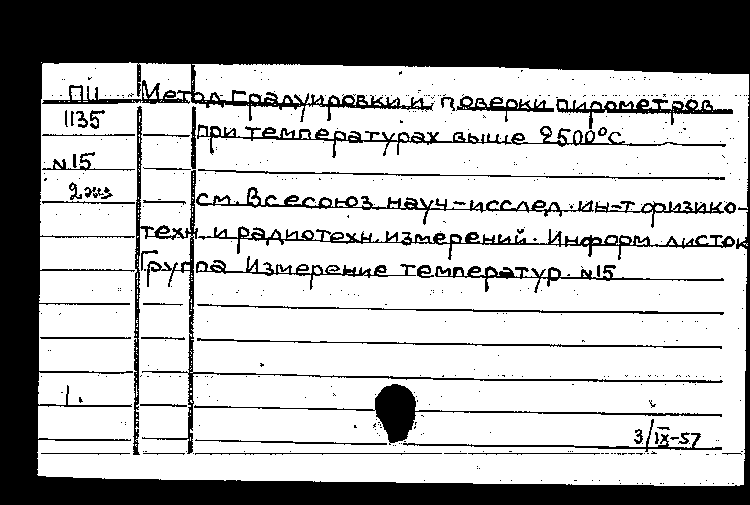 ПИ Метод градуировки и поверки пирометров
1135 при температурах выше 2500°С
N15
2 экз см. Всесоюз науч-исслед. ин-т физико-
техн. и радиотехн. измерений. Информ. листок
Группа Измерение температур. N15
1.
3/IX-57